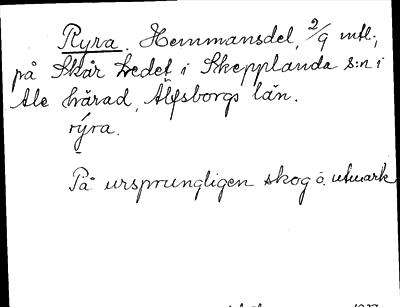 Ryra. Hemmansdel, 2/9 mtl;
på Skår Bredet i Skepplanda s:n i
Ale härad, Älfsborgs län.
rýra.
På ursprungligen skog o. utmark